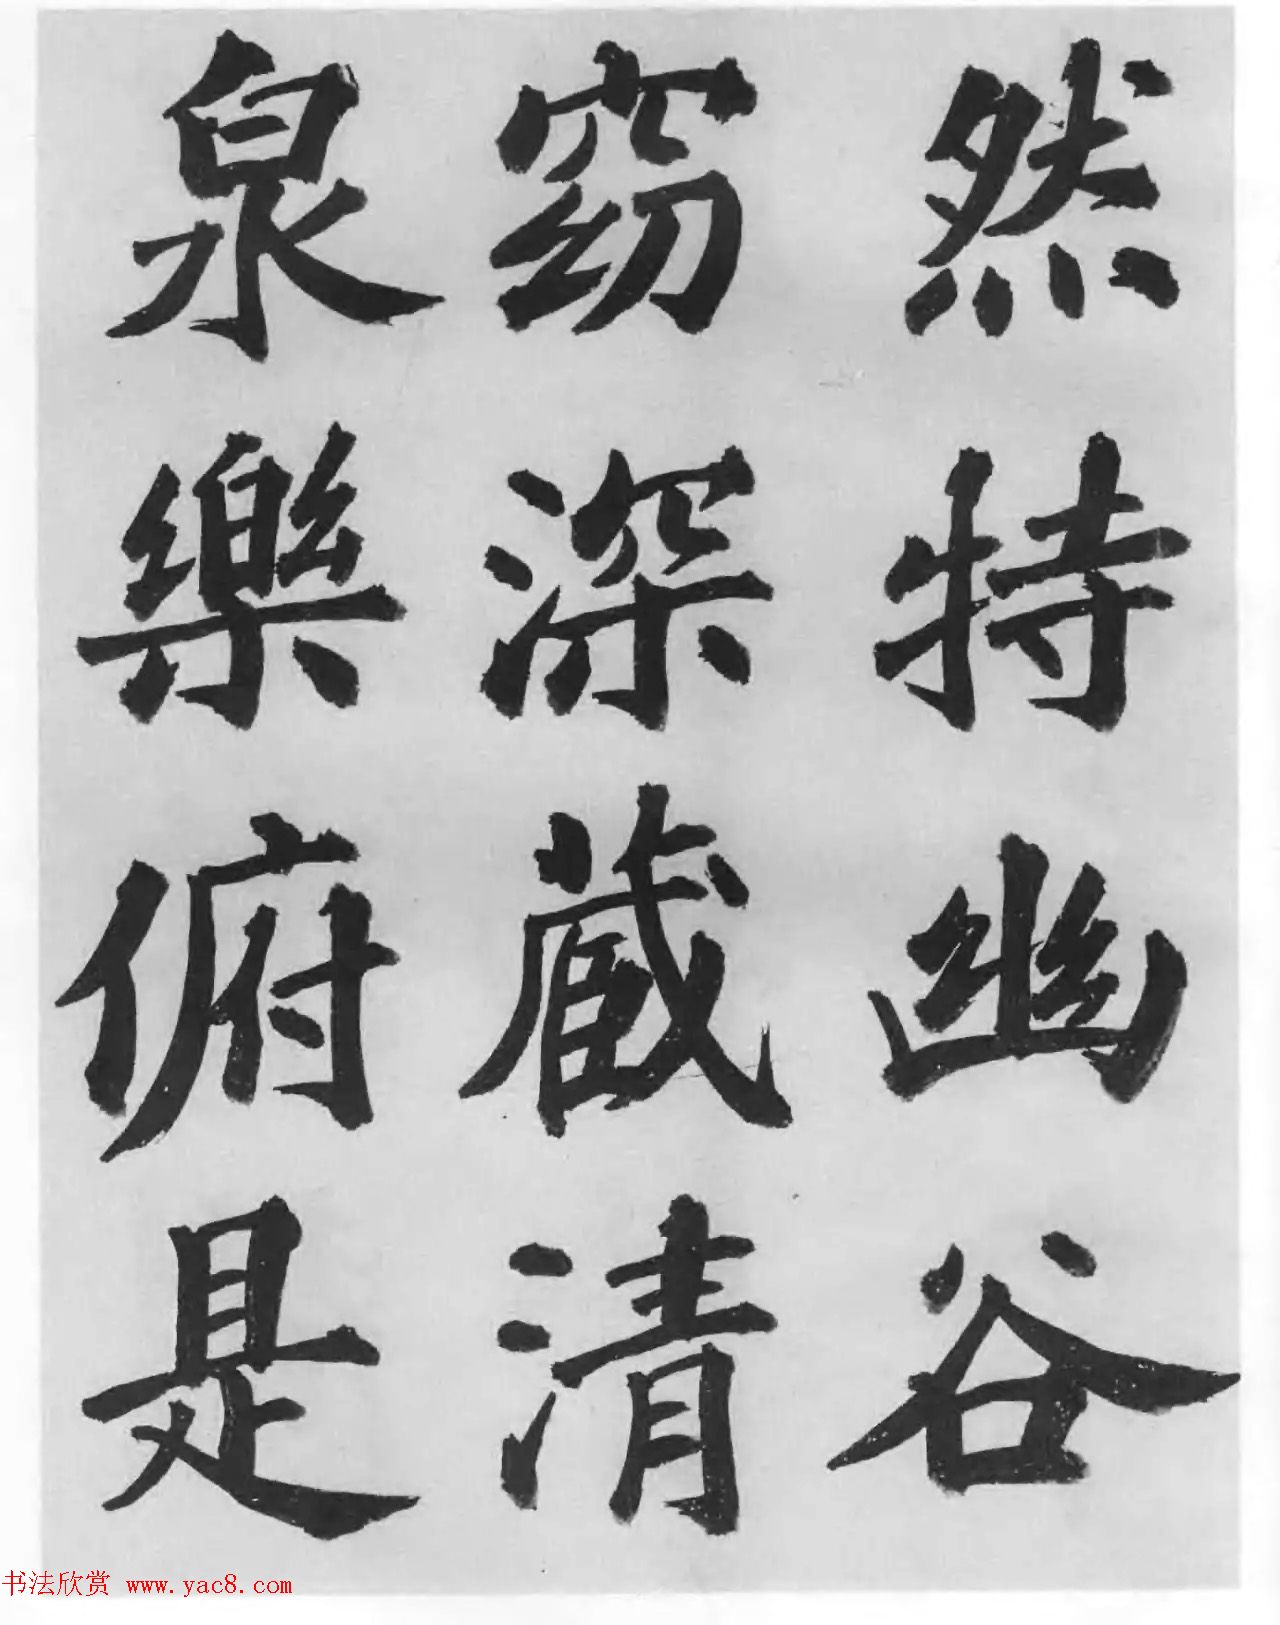 然特幽谷
窈深藏清
泉樂俯是
书法欣赏 www.yac8.com